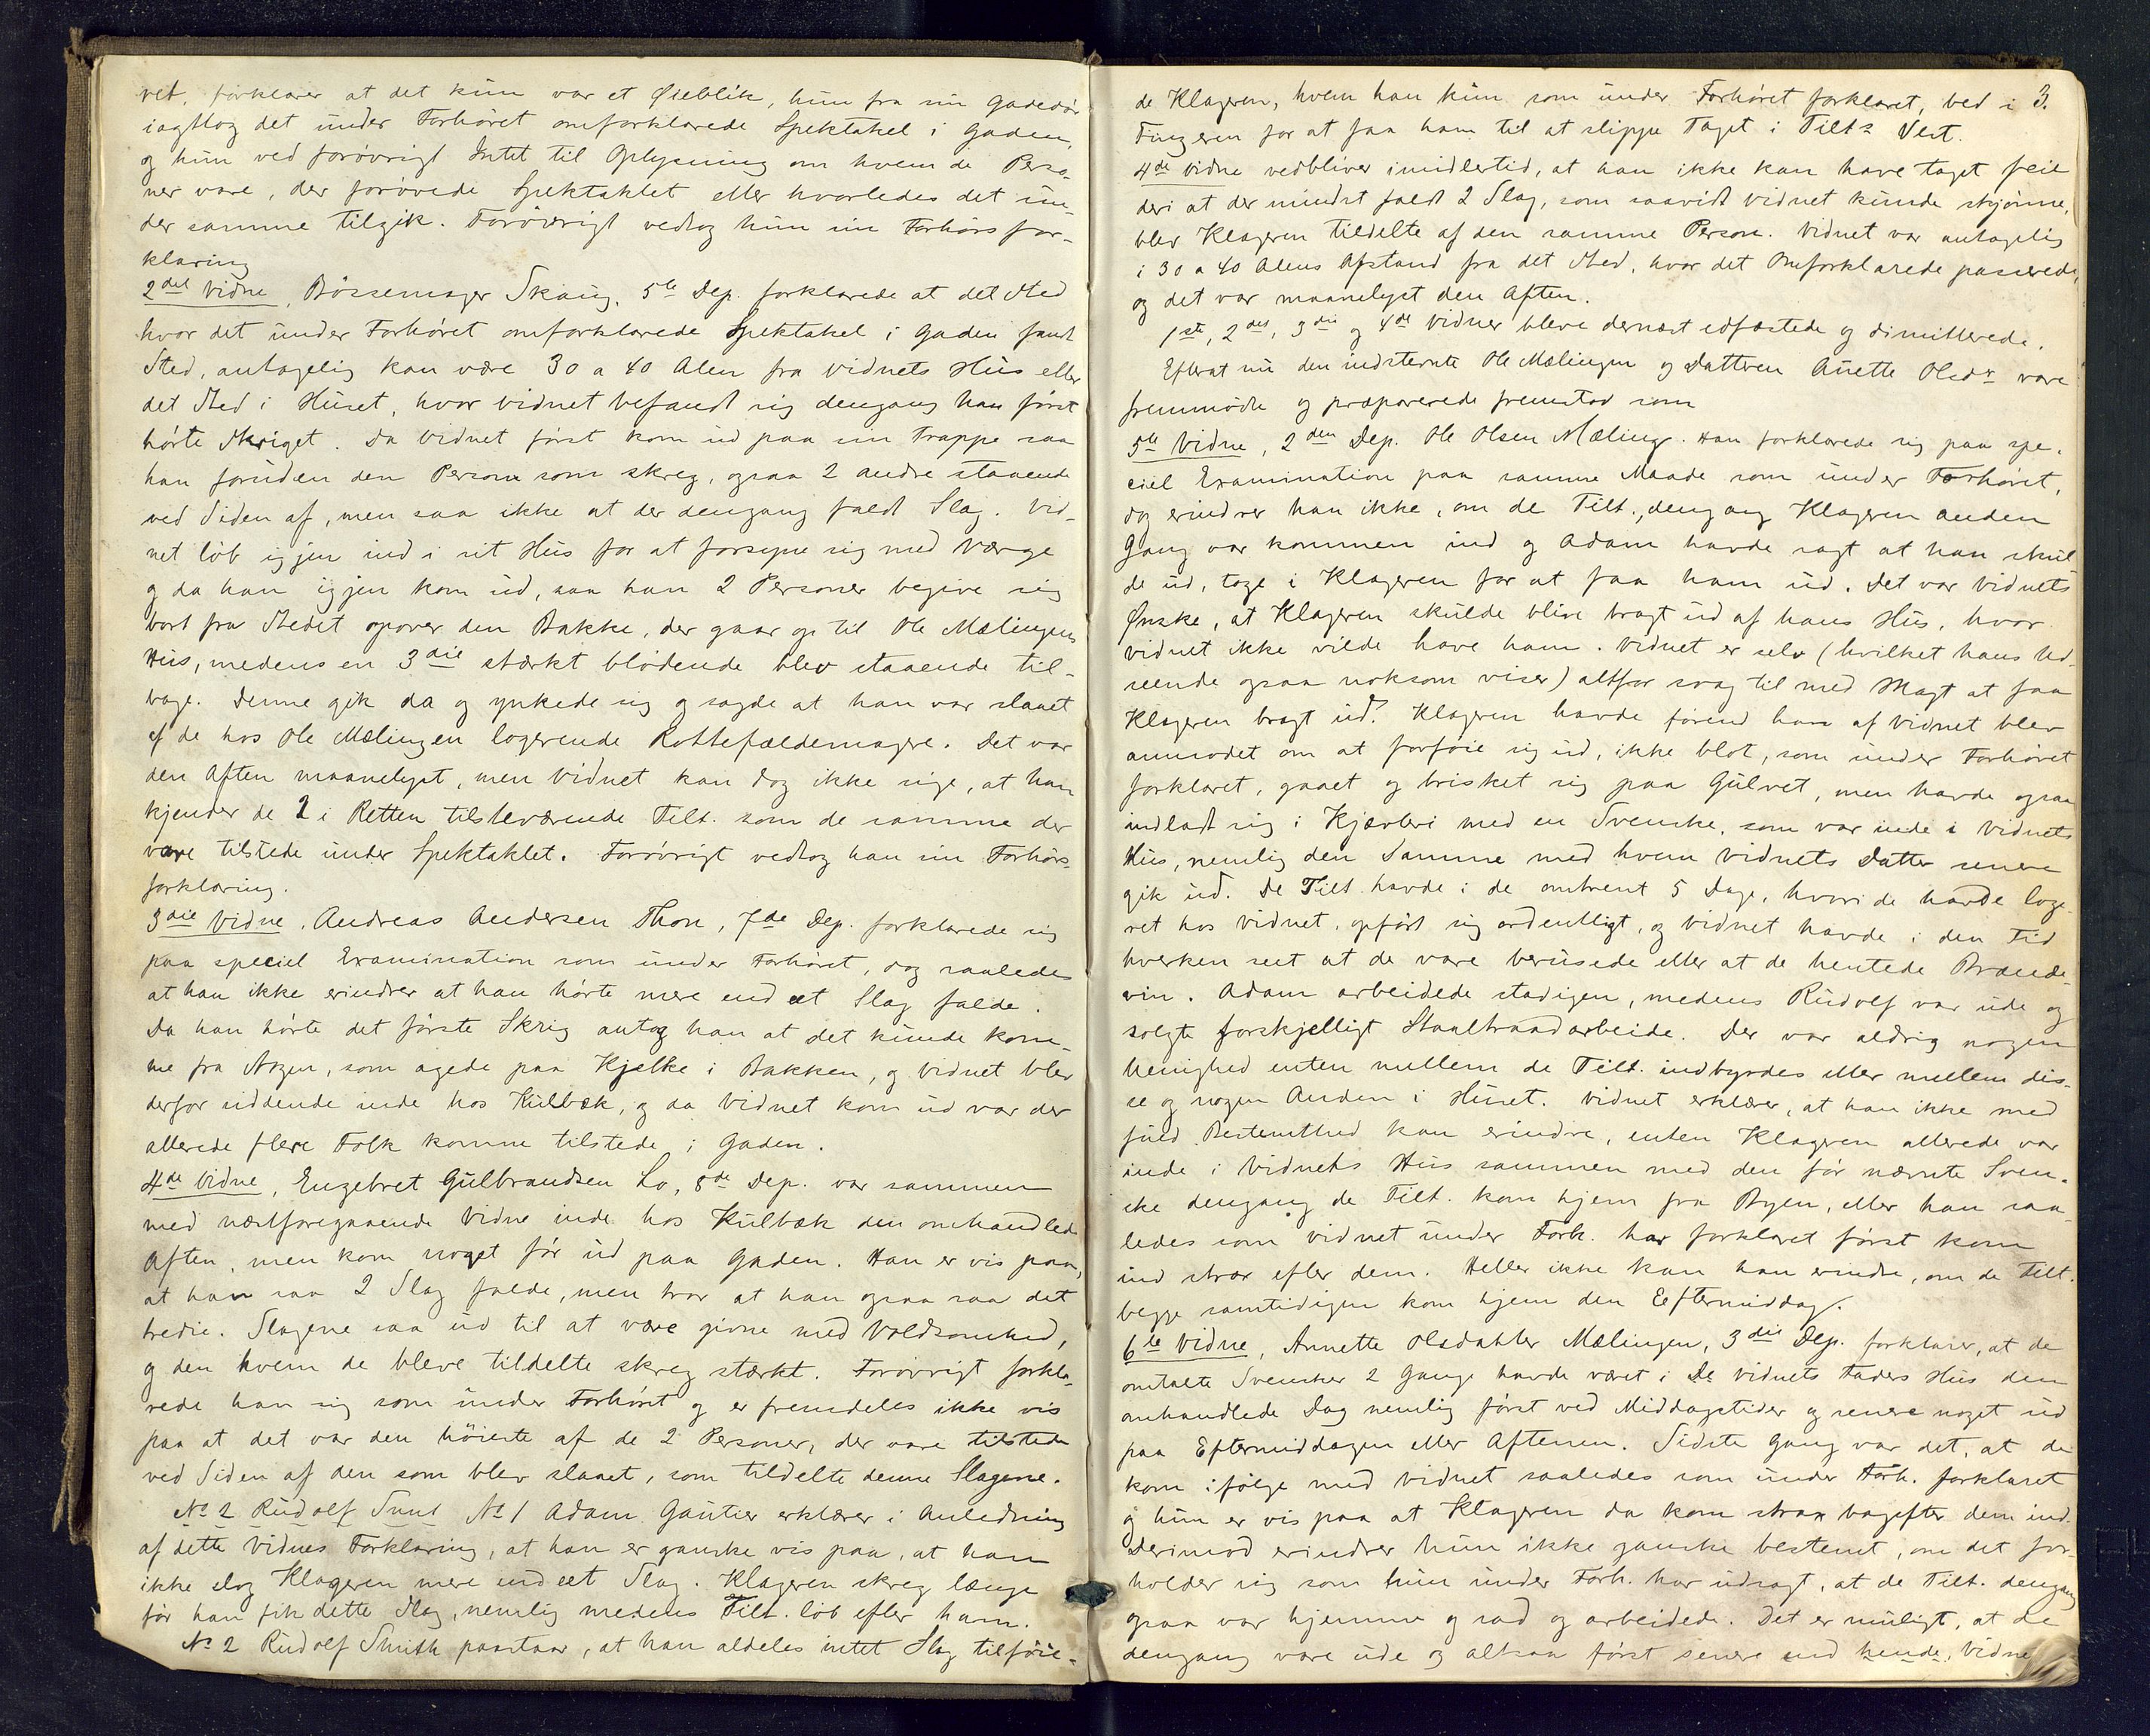 vet, forklarer at det kun var et Øieblik, hun fra sin Gadedör
iagttog det under Forhöret omforklarede Spektakel i Gaden,
og hun ved forövrigt Intet til Oplysning om hvem de Perso-
ner vare, der forövede Spektaklet eller hvorledes det un-
der samme tilgik. Forövrigt vedtog hun sin Forhörsfor-
klaring
2det Vidne, Bössemager Skaug, 5te Dep. forklarede at det Sted
hvor det under Forhöret omforklarede Spektakel i Gaden fandt
Sted, antagelig kan være 30 a 40 Alen fra Vidnets Hus eller
det Sted i Huset, hvor Vidnet befandt sig dengang han först
hörte Skriget. Da Vidnet först kom ud paa sin Trappe saa
han foruden den Person som skreg, ogsaa 2 andre staaende
ved Siden af, men saa ikke at der dengang faldt Slag. Vid-
net löb igjen ind i sit Hus for at forsyne sig med Værge
og da han igjen kom ud, saa han 2 Personer begive sig
bort fra Stedet opover den Bakke, der gaar op til Ole Mælingens
Hus, medens en 3die stærkt blödende blev staaende til-
bage. Denne gik da og ynkede sig og sagde at han var slaaet
af de hos Ole Mælingen logerende Rottefældemagere. Det var
den Aften maanelyst, men Vidnet kan dog ikke sige, at han
kjender de 2 i Retten tilsteværende Tilt. som de samme der
vare tilstede under Spektaklet. Forövrigt vedtog han sin Forhörs-
forklaring.
3die Vidne, Andreas Andersen Thon, 7de Dep. forklarede sig
paa speciel Examination som under Forhöret, dog saaledes
at han ikke erindrer at han hörte mere end et Slag falde.
Da han hörte det förste Skrig antog han at det kunde kom-
me fra Nogen, som agede paa Kjelke i Bakken, og Vidnet blev
derfor siddende inde hos Kulbæk, og da Vidnet kom ud var der
allerede flere Folk komne tilstede i Gaden.
4de Vidne, Engebret Gulbrandsen Lo, 8de Dep. var sammen
med næstforegaaende Vidne inde hos Kulbæk den omhandlede
Aften, men kom noget för ud paa Gaden. Han er vis paa,
at han saa 2 Slag falde, men tror at han ogsaa saa det
tredie. Slagene saa ud til at være givne med Voldsomhed,
og den hvem de bleve tildelte skreg stærkt. Forövrigt forkla-
rede han sig som under Forhöret og er fremdeles ikke vis
paa at det var den höieste af de 2 Personer, der vare tilstede
ved Siden af den som blev slaaet, som tildelte denne Slagene.
No 2 Rudolf Smit No 1 Adam Gautier erklærer i Anledning
af dette Vidnes Forklaring, at han er ganske vis paa, at han
ikke slog Klageren mere end et Slag. Klageren skreg længe
för han fik dette Slag, nemlig medens Tilt. löb efter ham.
No 2 Rudolf Smith paastaar, at han aldeles intet Slag tilföie-
3.
de Klageren, hvem han kun som under Forhöret forklaret, bed i
Fingeren for at faa ham til at slippe Taget i Tilts Vest.
4de Vidne vedbliver imidlertid, at han ikke kan have taget feil
deri at der mindst faldt 2 Slag, som saavidt Vidnet kunde skjönne,
blev Klageren tildelte af den samme Person. Vidnet var antagelig
i 30 a 40 Alens Afstand fra det Sted, hvor det Omforklarede passerede,
og det var maanelyst den Aften.
1ste, 2det, 3die og 4de Vidner bleve dernæst edfæstede og dimitterede.
Efterat nu den indstevnte Ole Mælingen og Datteren Anette Olsdr vare
fremmödte og præparerede fremstod som
5te Vidne, 2den Dep. Ole Olsen Mæling. Han forklarede sig paa spe-
ciel Examination paa samme Maade som under Forhöret,
dog erindrer han ikke, om de Tilt., dengang Klageren anden
Gang var kommen ind og Adam havde sagt at han skul-
de ud, toge i Klageren for at faa ham ud. Det var Vidnets
Ønske, at Klageren skulde blive bragt ud af hans Hus, hvor
Vidnet ikke vilde have ham. Vidnet er selv (hvilket hans Ud-
seende ogsaa noksom viser) altfor svag til med Magt at faa
Klageren bragt ud. Klageren havde förend han af Vidnet blev
anmodet om at forföie sig ud, ikke blot, som under Forhöret
forklaret, gaaet og brisket sig paa Gulvet, men havde ogsaa
indladt sig i Kjævleri med en Svenske, som var inde i Vidnets
Hus, nemlig den Samme med hvem Vidnets Datter senere
gik ud. De Tilt. havde i de omtrent 5 Dage, hvori de havde loge-
ret hos Vidnet, opfört sig ordentligt, og Vidnet havde i den Tid
hverken seet at de vare berusede eller at de hentede Brænde-
vin. Adam arbeidede stadigen, medens Rudolf var ude og
solgte forskjelligt Staaltraadarbeide. Der var aldrig nogen
Uenighed enten mellem de Tilt. indbyrdes eller mellem dis-
se og nogen Anden i Huset. Vidnet erklærer, at han ikke med
fuld Bestemthed kan erindre, enten Klageren allerede var
inde i Vidnets Hus sammen med den för nævnte Sven-
ske dengang de Tilt. kom hjem fra Byen, eller han saa-
ledes som Vidnet under Forh. har forklaret först kom
ind strax efter dem. Heller ikke kan han erindre, om de Tilt.
begge samtidigen kom hjem den Eftermiddag.
6te Vidne, Annette Olsdatter Mælingen, 3die Dep. forklarer, at de
omtalte Svensker 2 Gange havde været i De Vidnets Faders Hus den
omhandlede Dag nemlig först ved Middagstider og senere noget ud
paa Eftermiddagen eller Aftenen. Sidste Gang var det, at de
kom ifölge med Vidnet saaledes som under Forh. forklaret
og hun er vis paa at Klageren da kom strax bagefter dem ind.
Derimod erindrer hun ikke ganske bestemt, om det for-
holder sig som hun under Forh. har udsagt, at de Tilt. dengang
ogsaa var hjemme og sad og arbeidede. Det er muligt, at de
dengang vare ude og altsaa först senere end hende, Vidne